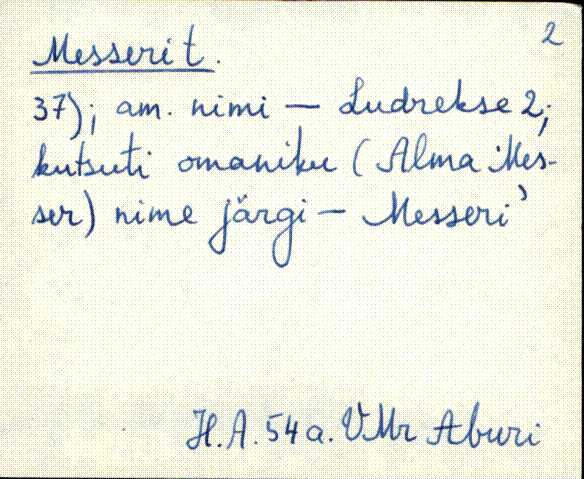 2
Messeri t.
37); am. nimi — Ludrekse 2;
kutsuti omaniku (Alma Mes-
ser) nime järgi — Messeri'
H.A. 54 a. VMr Aburi